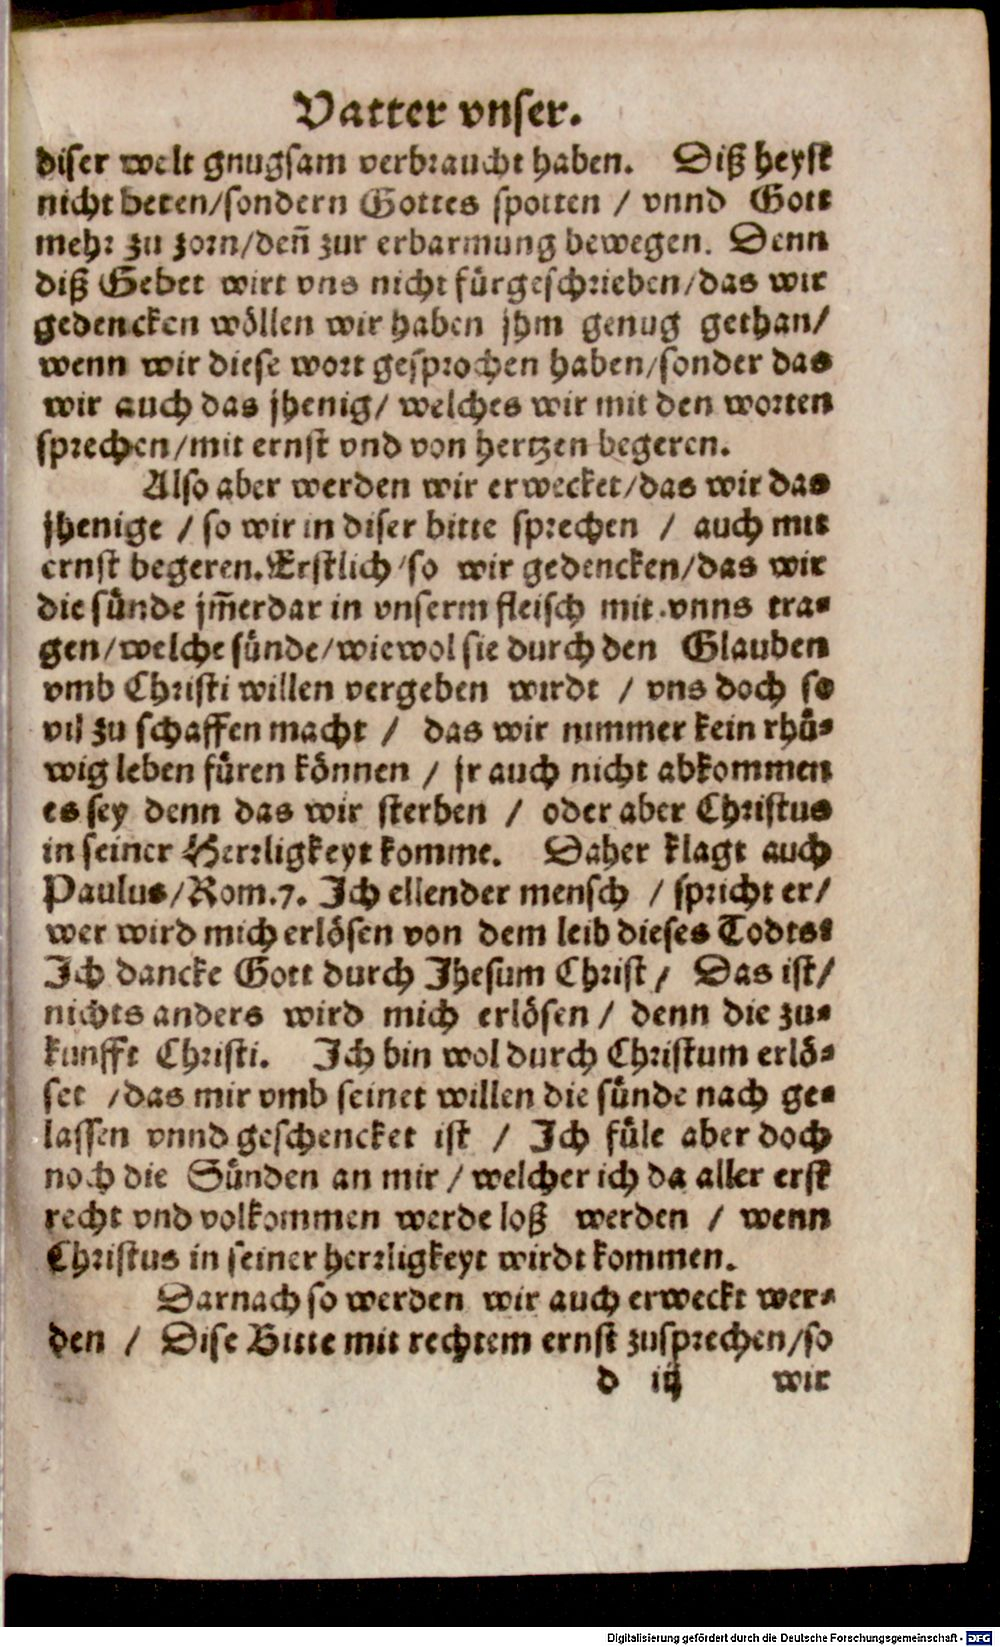 Vatter vnser.
diser welt gnugsam verbraucht haben. Diß heyst
nicht beten/sondern Gottes spotten / vnnd Gott
mehr zu zorn/deñ zur erbarmung bewegen. Denn
diß Gebet wirt vns nicht fürgeschrieben/das wir
gedencken wöllen wir haben jhm genug gethan/
wenn wir diese wort gesprochen haben/sonder das
wir auch das jhenig/ welches wir mit den worten
sprechen/mit ernst vnd von hertzen begeren.
Also aber werden wir erwecket/das wir das
jhenige / so wir in diser bitte sprechen / auch mit
ernst begeren. Erstlich/so wir gedencken/das wir
die sünde jm̃erdar in vnserm fleisch mit vnns tra-
gen/welche sünde/wiewol sie durch den Glauben
vmb Christi willen vergeben wirdt / vns doch so
vil zu schaffen macht / das wir nimmer kein rhü-
wig leben füren können / jr auch nicht abkommen
es sey denn das wir sterben / oder aber Christus
in seiner Herrligkeyt komme. Daher klagt auch
Paulus/Rom.7. Ich ellender mensch / spricht er/
wer wird mich erlösen von dem leib dieses Todts?
Ich dancke Gott durch Jhesum Christ/ Das ist/
nichts anders wird mich erlösen / denn die zu-
kunfft Christi. Ich bin wol durch Christum erlö-
set /das mir vmb seinet willen die sünde nach ge-
lassen vnnd geschencket ist / Ich füle aber doch
noch die Sünden an mir / welcher ich da aller erst
recht vnd volkommen werde loß werden / wenn
Christus in seiner herrligkeyt wirdt kommen.
Darnach so werden wir auch erweckt wer-
den / Dise Bitte mit rechtem ernst zusprechen/so
d iij wir
Digitalisierung gefördert durch die Deutsche Forschungsgemeinschaft - DFG